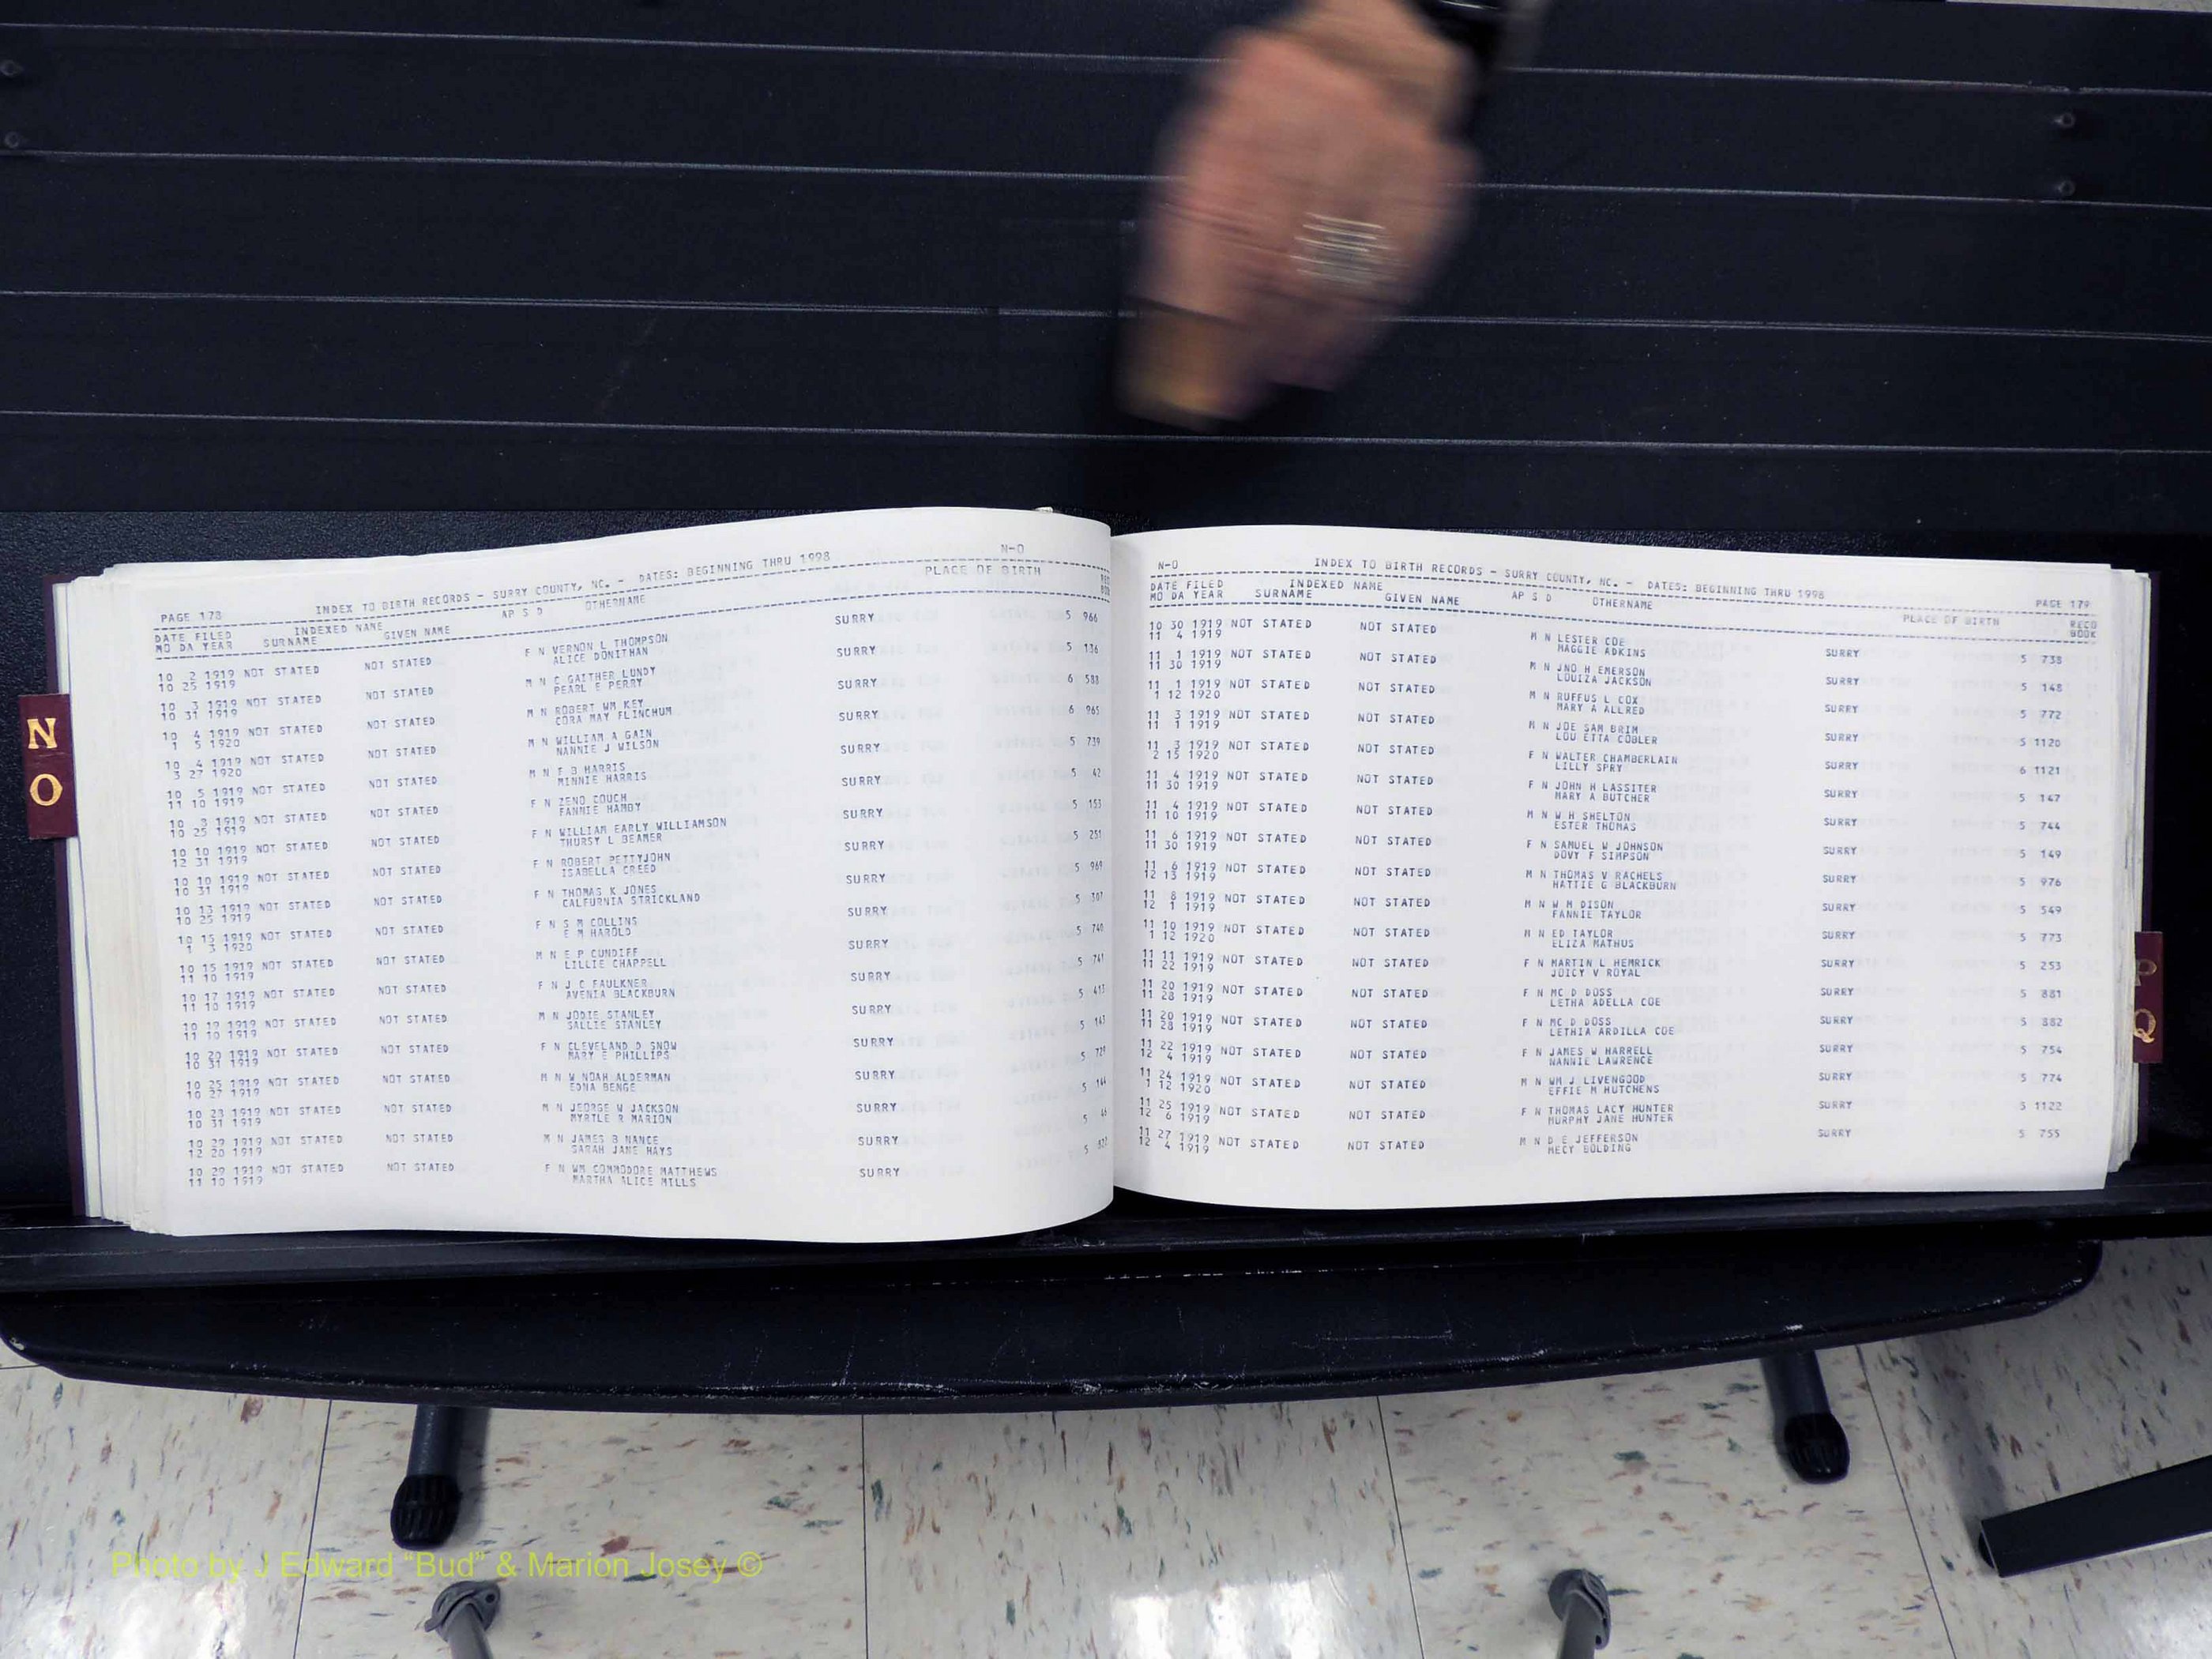 N
O
PAGE 178 INDEX TO BIRTH RECORDS - SURRY COUNTY, NC. - DATES: BEGINNING THRU 1998 N-O
DATE FILED INDEXED NAME AP S D OTHERNAME PLACE OF BIRTH
MO DA YEAR SURNAME GIVEN NAME
10 2 1919 NOT STATED NOT STATED F N VERNON L THOMPSON SURRY 5 966
10 25 1919 ALICE DONITHAN
10 3 1919 NOT STATED NOT STATED M N C GAITHER LUNDY SURRY 5 136
10 31 1919 PEARL E PERRY
10 4 1919 NOT STATED NOT STATED M N ROBERT WM KEY SURRY 6 583
1 5 1920 CORA MAY FLINCHUM
10 4 1919 NOT STATED NOT STATED M N WILLIAM A GAIN SURRY 6 965
3 27 1920 NANNIE J WILSON
10 5 1919 NOT STATED NOT STATED M N F B HARRIS SURRY 5 739
11 10 1919 MINNIE HARRIS
10 8 1919 NOT STATED NOT STATED F N ZENO COUCH SURRY 5 42
10 25 1919 FANNIE HAMBY
10 10 1919 NOT STATED NOT STATED F N WILLIAM EARLY WILLIAMSON SURRY 5 153
12 31 1919 THURSY L BEAMER
10 10 1919 NOT STATED NOT STATED F N ROBERT PETTYJOHN SURRY 5 251
10 31 1919 ISABELLA CREED
10 13 1919 NOT STATED NOT STATED F N THOMAS K JONES SURRY 5 969
10 25 1919 CALFURNIA STRICKLAND
10 15 1919 NOT STATED NOT STATED F N S M COLLINS SURRY 5 307
1 3 1920 E M HAROLD
10 15 1919 NOT STATED NOT STATED M N E P CUNDIFF SURRY 5 740
11 10 1919 LILLIE CHAPPELL
10 17 1919 NOT STATED NOT STATED F N J C FAULKNER SURRY 5 741
11 10 1919 AVENIA BLACKBURN
10 19 1919 NOT STATED NOT STATED M N JODIE STANLEY SURRY 5
11 10 1919 SALLIE STANLEY
10 20 1919 NOT STATED NOT STATED F N CLEVELAND D SNOW SURRY 5
10 31 1919 MARY E PHILLIPS
10 25 1919 NOT STATED NOT STATED M N W NOAH ALDERMAN SURRY 5
10 27 1919 EDNA BENGE
10 28 1919 NOT STATED NOT STATED M N JEORGE W JACKSON SURRY 5
10 31 1919 MYRTLE R MARION
10 29 1919 NOT STATED NOT STATED M N JAMES B NANCE SURRY 5
12 20 1919 SARAH JANE HAYS
10 29 1919 NOT STATED NOT STATED F N WM COMMODORE MATTHEWS SURRY 5
11 10 1919 MARTHA ALICE MILLS
N-O INDEX TO BIRTH RECORDS - SURRY COUNTY, NC. - DATES: BEGINNING THRU 1998 PAGE 179
DATE FILED INDEXED NAME AP S D OTHERNAME PLACE OF BIRTH RECO
MO DA YEAR SURNAME GIVEN NAME BOOK
10 30 1919 NOT STATED NOT STATED M N LESTER COE SURRY 5 738
11 4 1919 MAGGIE ADKINS
11 1 1919 NOT STATED NOT STATED M N JNO H EMERSON SURRY 5 148
11 30 1919 LOUIZA JACKSON
11 1 1919 NOT STATED NOT STATED M N RUFFUS L COX SURRY 5 772
1 12 1920 MARY A ALLRED
11 3 1919 NOT STATED NOT STATED M N JOE SAM BRIM SURRY 5 1120
11 1 1919 LOU ETTA COBLER
11 3 1919 NOT STATED NOT STATED F N WALTER CHAMBERLAIN SURRY 6 1121
2 15 1920 LILLY SPRY
11 4 1919 NOT STATED NOT STATED F N JOHN H LASSITER SURRY 5 147
11 30 1919 MARY A BUTCHER
11 4 1919 NOT STATED NOT STATED M N W H SHELTON SURRY 5 744
11 10 1919 ESTER THOMAS
11 6 1919 NOT STATED NOT STATED F N SAMUEL W JOHNSON SURRY 5 149
11 30 1919 DOVY F SIMPSON
11 6 1919 NOT STATED NOT STATED M N THOMAS V RACHELS SURRY 5 976
12 13 1919 HATTIE G BLACKBURN
11 8 1919 NOT STATED NOT STATED M N W M DISON SURRY 5 549
12 1 1919 FANNIE TAYLOR
11 10 1919 NOT STATED NOT STATED M N ED TAYLOR SURRY 5 773
1 12 1920 ELIZA MATHUS
11 11 1919 NOT STATED NOT STATED F N MARTIN L HEMRICK SURRY 5 253
11 22 1919 JOICY V ROYAL
11 20 1919 NOT STATED NOT STATED F N MC D DOSS SURRY 5 881
11 28 1919 LETHA ADELLA COE
11 20 1919 NOT STATED NOT STATED F N MC D DOSS SURRY 5 882
11 28 1919 LETHIA ARDILLA COE
11 22 1919 NOT STATED NOT STATED F N JAMES W HARRELL SURRY 5 754
12 4 1919 NANNIE LAWRENCE
11 24 1919 NOT STATED NOT STATED M N WM J LIVENGOOD SURRY 5 774
1 12 1920 EFFIE M HUTCHENS
11 25 1919 NOT STATED NOT STATED F N THOMAS LACY HUNTER SURRY 5 1122
12 6 1919 MURPHY JANE HUNTER
11 27 1919 NOT STATED NOT STATED M N D E JEFFERSON SURRY 5 755
12 4 1919 MECY GOLDING
P
Q
Photo by J Edward “Bud” & Marion Josey ©